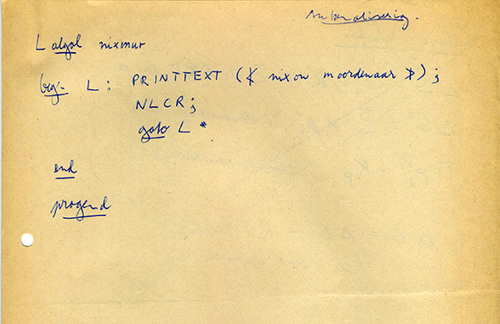 Automatisering.
L algol nixmur
beg. L: PRINTTEXT (⊀ nixon moordenaar ⊁);
NLCR;
goto L *
end
progend